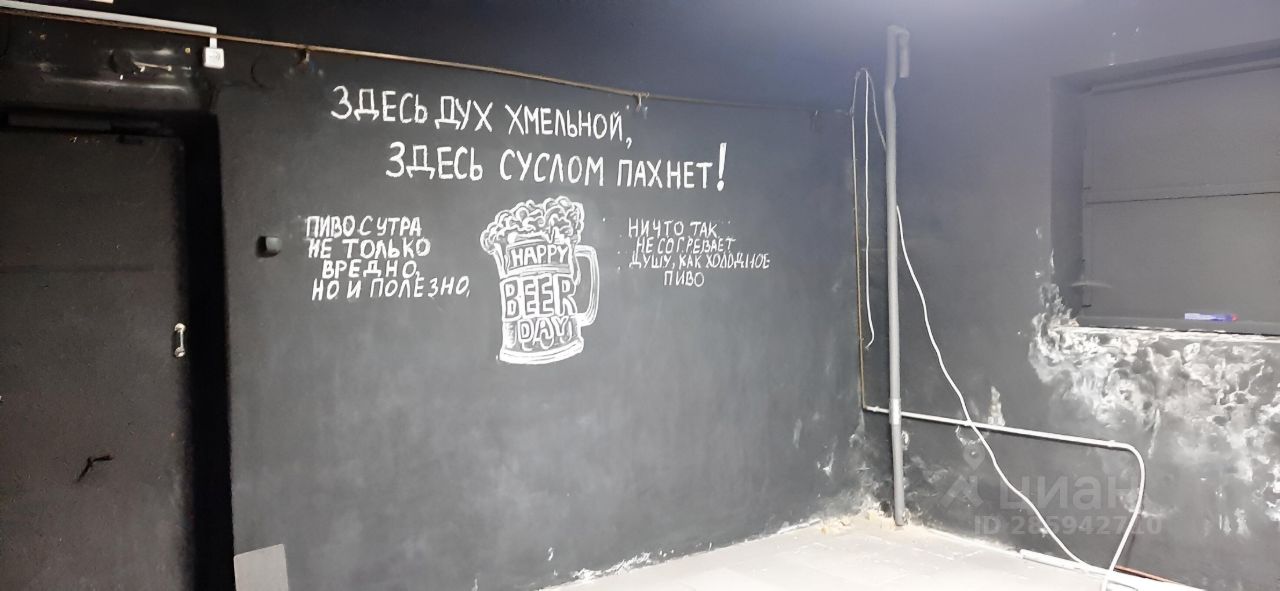 ЗДЕСЬ ДУХ ХМЕЛЬНОЙ,
ЗДЕСЬ СУСЛОМ ПАХНЕТ!
ПИВО С УТРА
НЕ ТОЛЬКО
ВРЕДНО,
НО И ПОЛЕЗНО,
HAPPY
BEER
DAY
НИЧТО ТАК
НЕ СОГРЕВАЕТ
ДУШУ, КАК ХОЛОДНОЕ
ПИВО
циан
ID 285942710